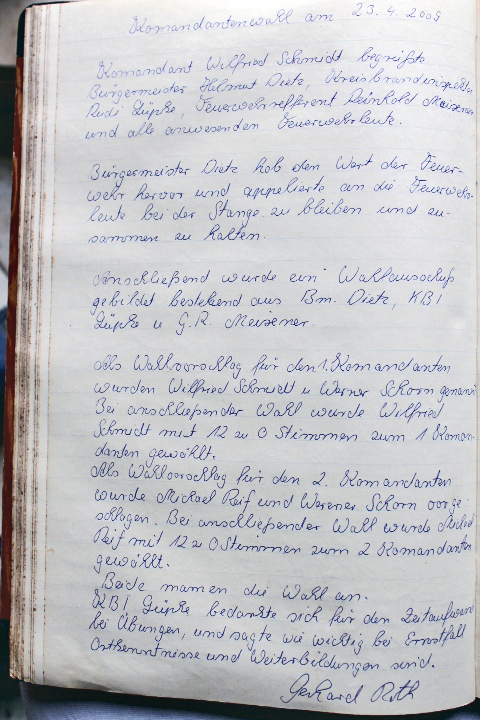 Komandantenwahl am 23.4.2009
Komandant Wilfried Schmidt begrüßte
Bürgermeister Helmut Dietz, Kreisbrandinspektor
Rudi Lüpke, Feuerwehrrefferent Reinhold Meisener
und alle anwesenden Feuerwehrleute.
Bürgermeister Dietz hob den Wert der Feuer-
wehr hervor und appelierte an die Feuerwehr-
leute bei der Stange zu bleiben und zu-
sammen zu halten.
Anschließend wurde ein Wahlausschuß
gebildet bestehend aus Bm. Dietz, KBI
Lüpke u G.R. Meisener.
Als Wahlvorschlag für den 1. Komandanten
wurden Wilfried Schmidt u Werner Schorn genannt
Bei anschließender Wahl wurde Wilfried
Schmidt mit 12 zu 0 Stimmen zum 1 Koman-
danten gewählt.
Als Wahlvorschlag für den 2. Komandanten
wurde Michael Reif und Werener Schorn vorge-
schlagen. Bei anschließender Wahl wurde Michael
Reif mit 12 zu 0 Stimmen zum 2 Komandanten
gewählt.
Beide namen die Wahl an.
KBI Lüpke bedankte sich für den Zeitaufwand
bei Übungen, und sagte wie wichtig bei Ernstfall
Ortkenntnisse und Weiterbildungen sind.
Gerhard Roth